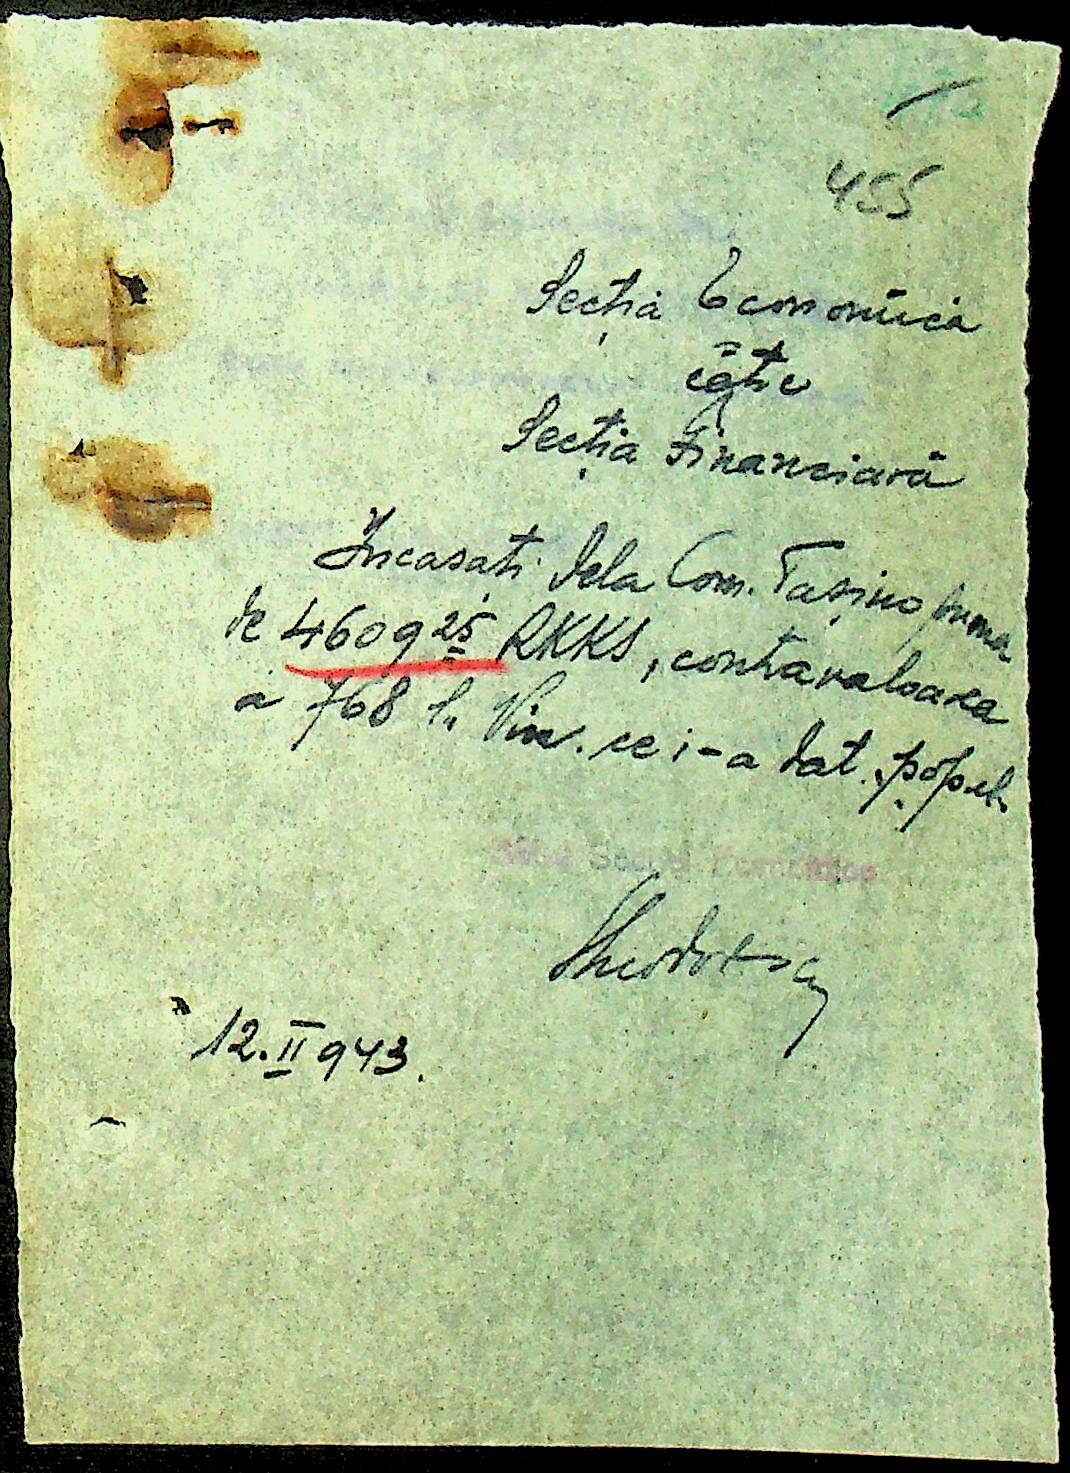 455
Secția Economică
către
Secția Financiară
Încasați dela Com. Tașino suma
de 4609 25 RKKS, contravaloarea
a 768 l. Vin. ce i-a dat
12.II 943.